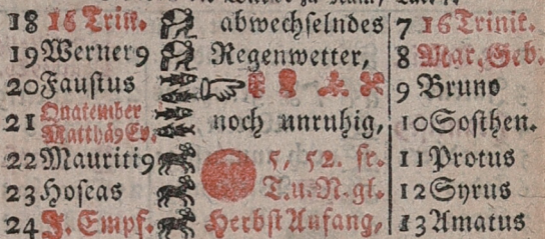 18 16 Trin. abwechselndes 7 16 Trinit.
19 Werner9 Regenwetter, 8 Mar. Geb.
20 Faustus 9 Bruno
21 Quatember Matthäy Ev. noch unruhig, 10 Sosthen.
22 Mauriti9 5/52. fr. 11 Protus
23 Hoseas T. u. N. gl. 12 Syrus
24 J. Empf. Herbst Anfang, 13 Amatus